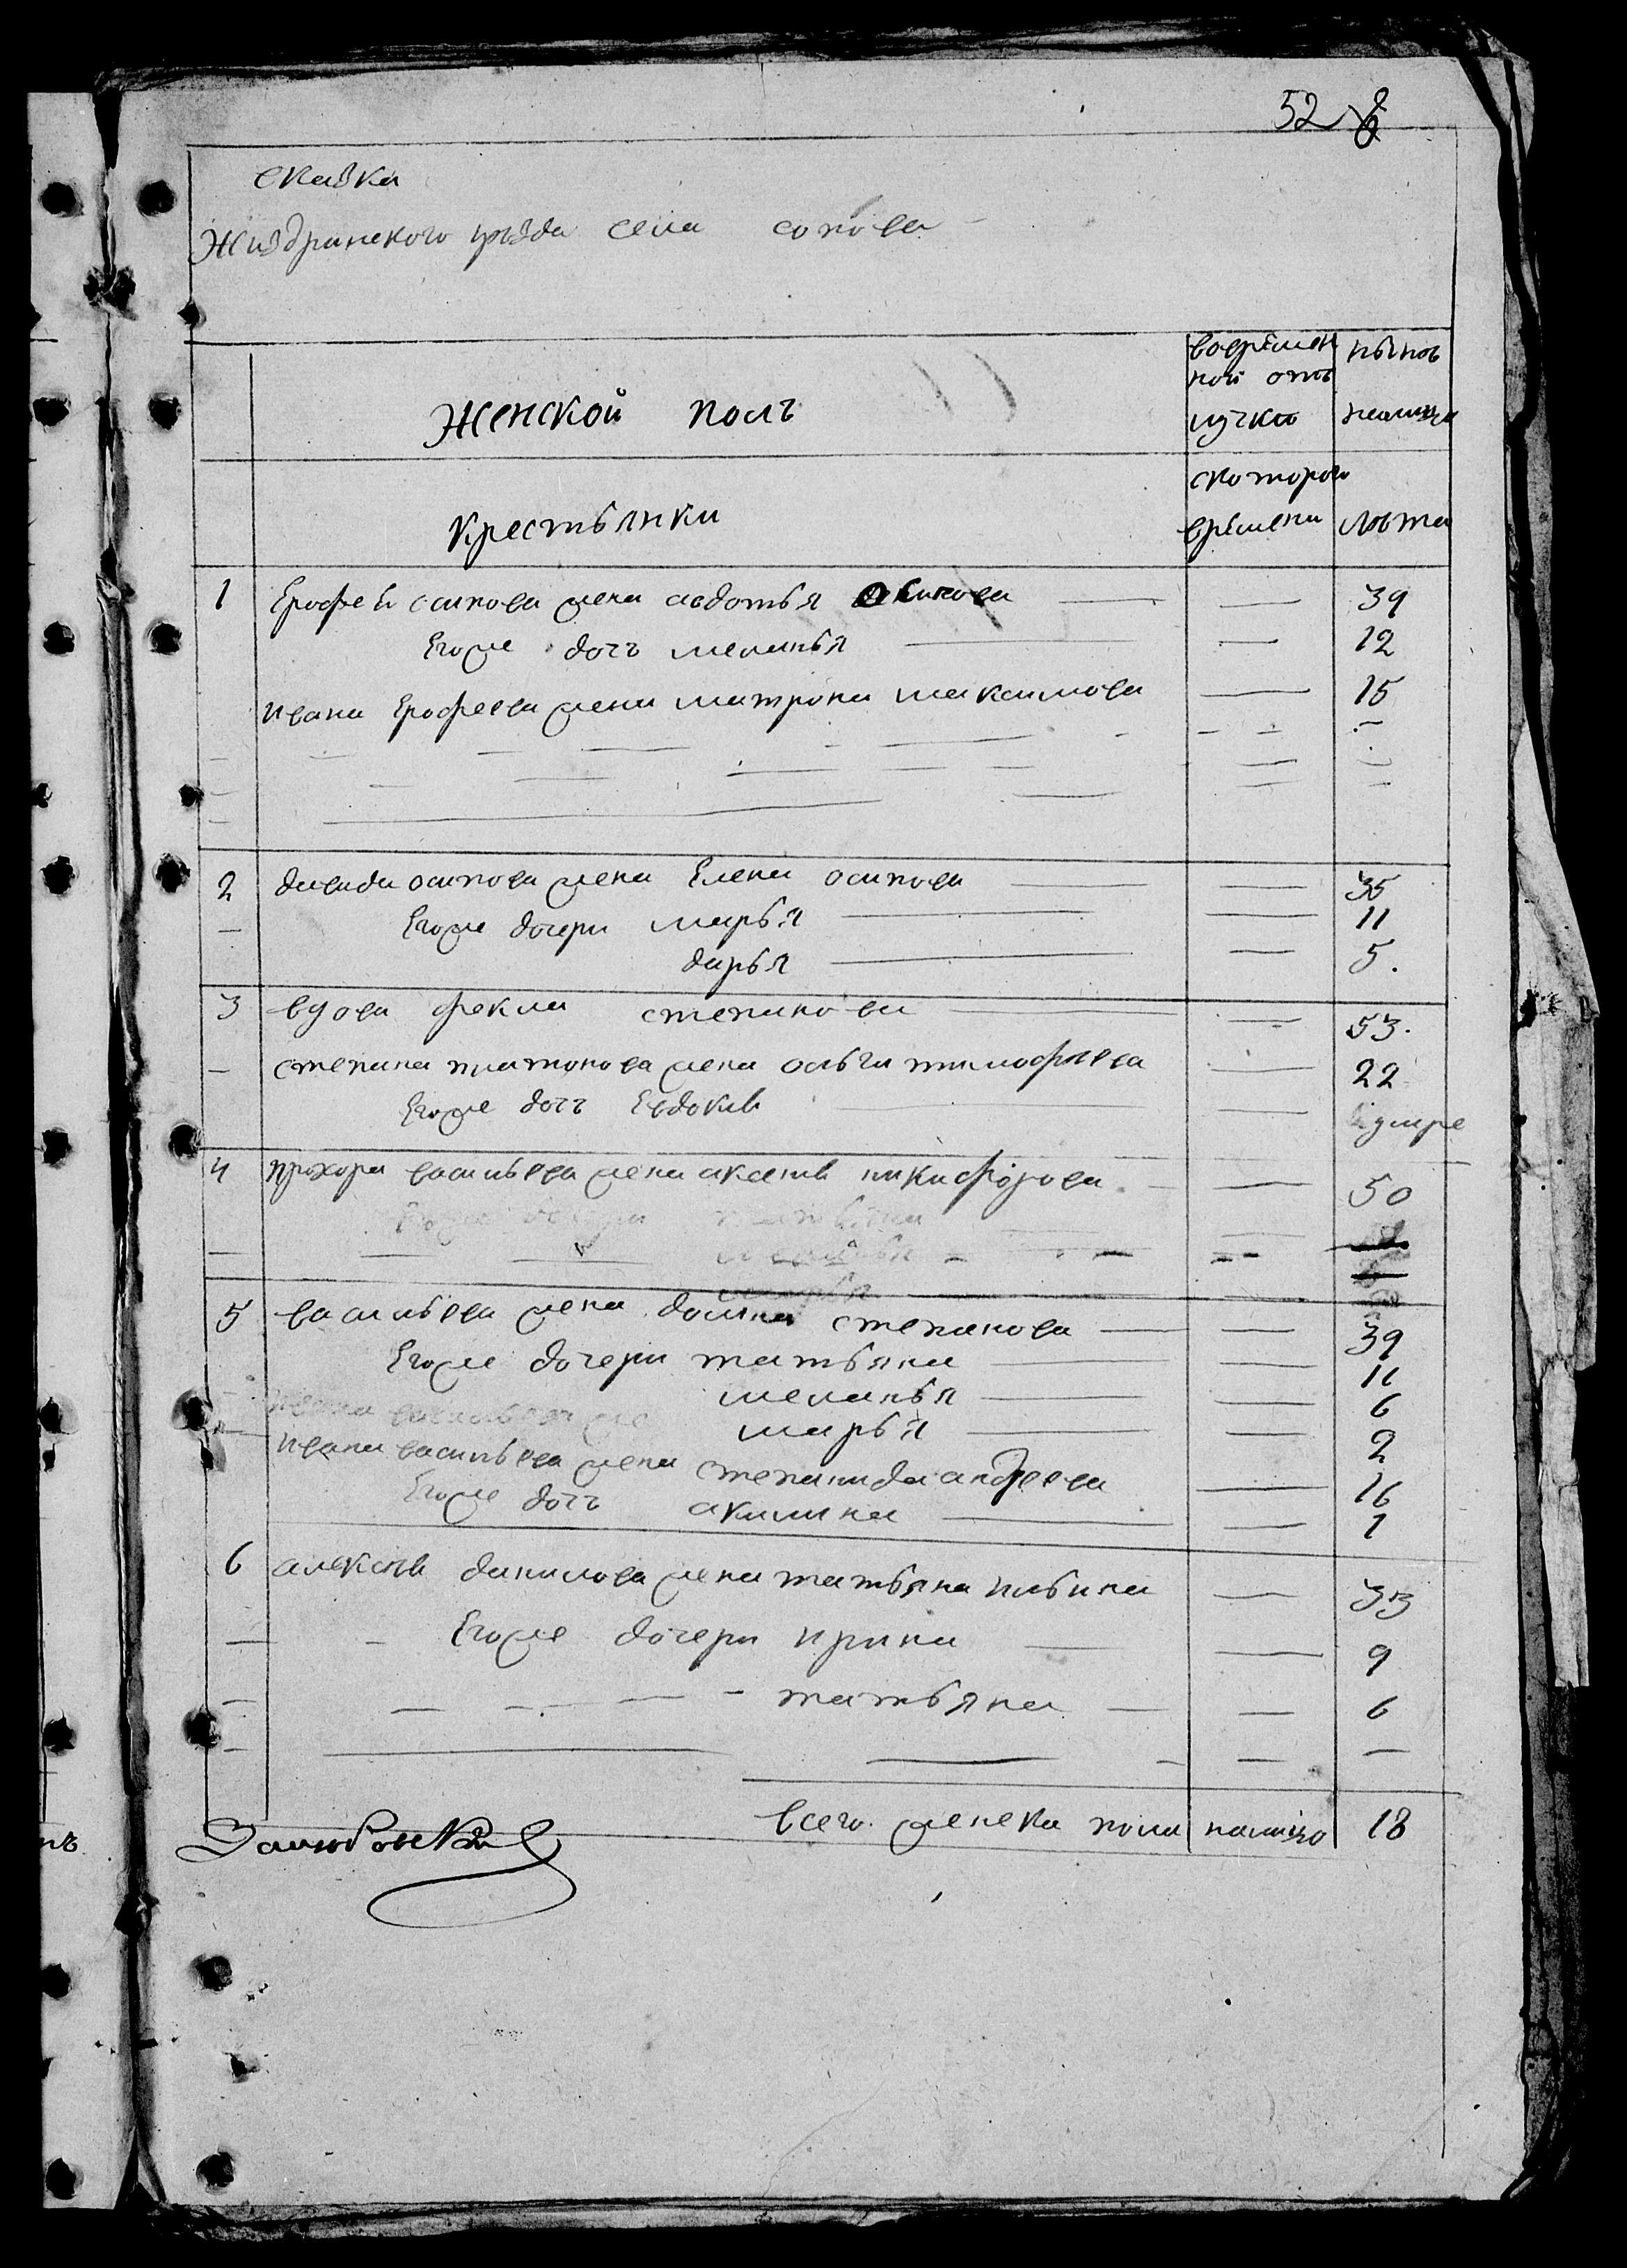 52
сказка
Жиздринского уезда села сопова
Женской полъ
вовремен
ной отъ
лучке
ныне
налицо
Крестьянки
скоторого
времени
лета
1 Ерофея осипова жена авдотья осипова — — 39
Егоже дочъ меланья — — 12
ивана Ерофеева жена матрона максимова — 15
2 давида осипова жена Елена осипова — — 35
Егоже дочери марья — — 11
дарья — — 5.
3 вдова фекла степанова — — 53.
степана платонова жена ольга тимофеева — 22
Егоже дочъ Евдокия — умре
4 прохора васильева жена аксения никифорова — 50
5 васильева жена домна степанова — — 39
Егоже дочери татьяна — — 11
меланья — — 6
марья — — 2
ивана васильева жена степанида андреева — 16
Егоже дочъ акилина — — 1
6 алексея данилова жена татьяна ильина — 33
Егоже дочери ирина — — 9
татьяна — — 6
всего женска пола налицо 18